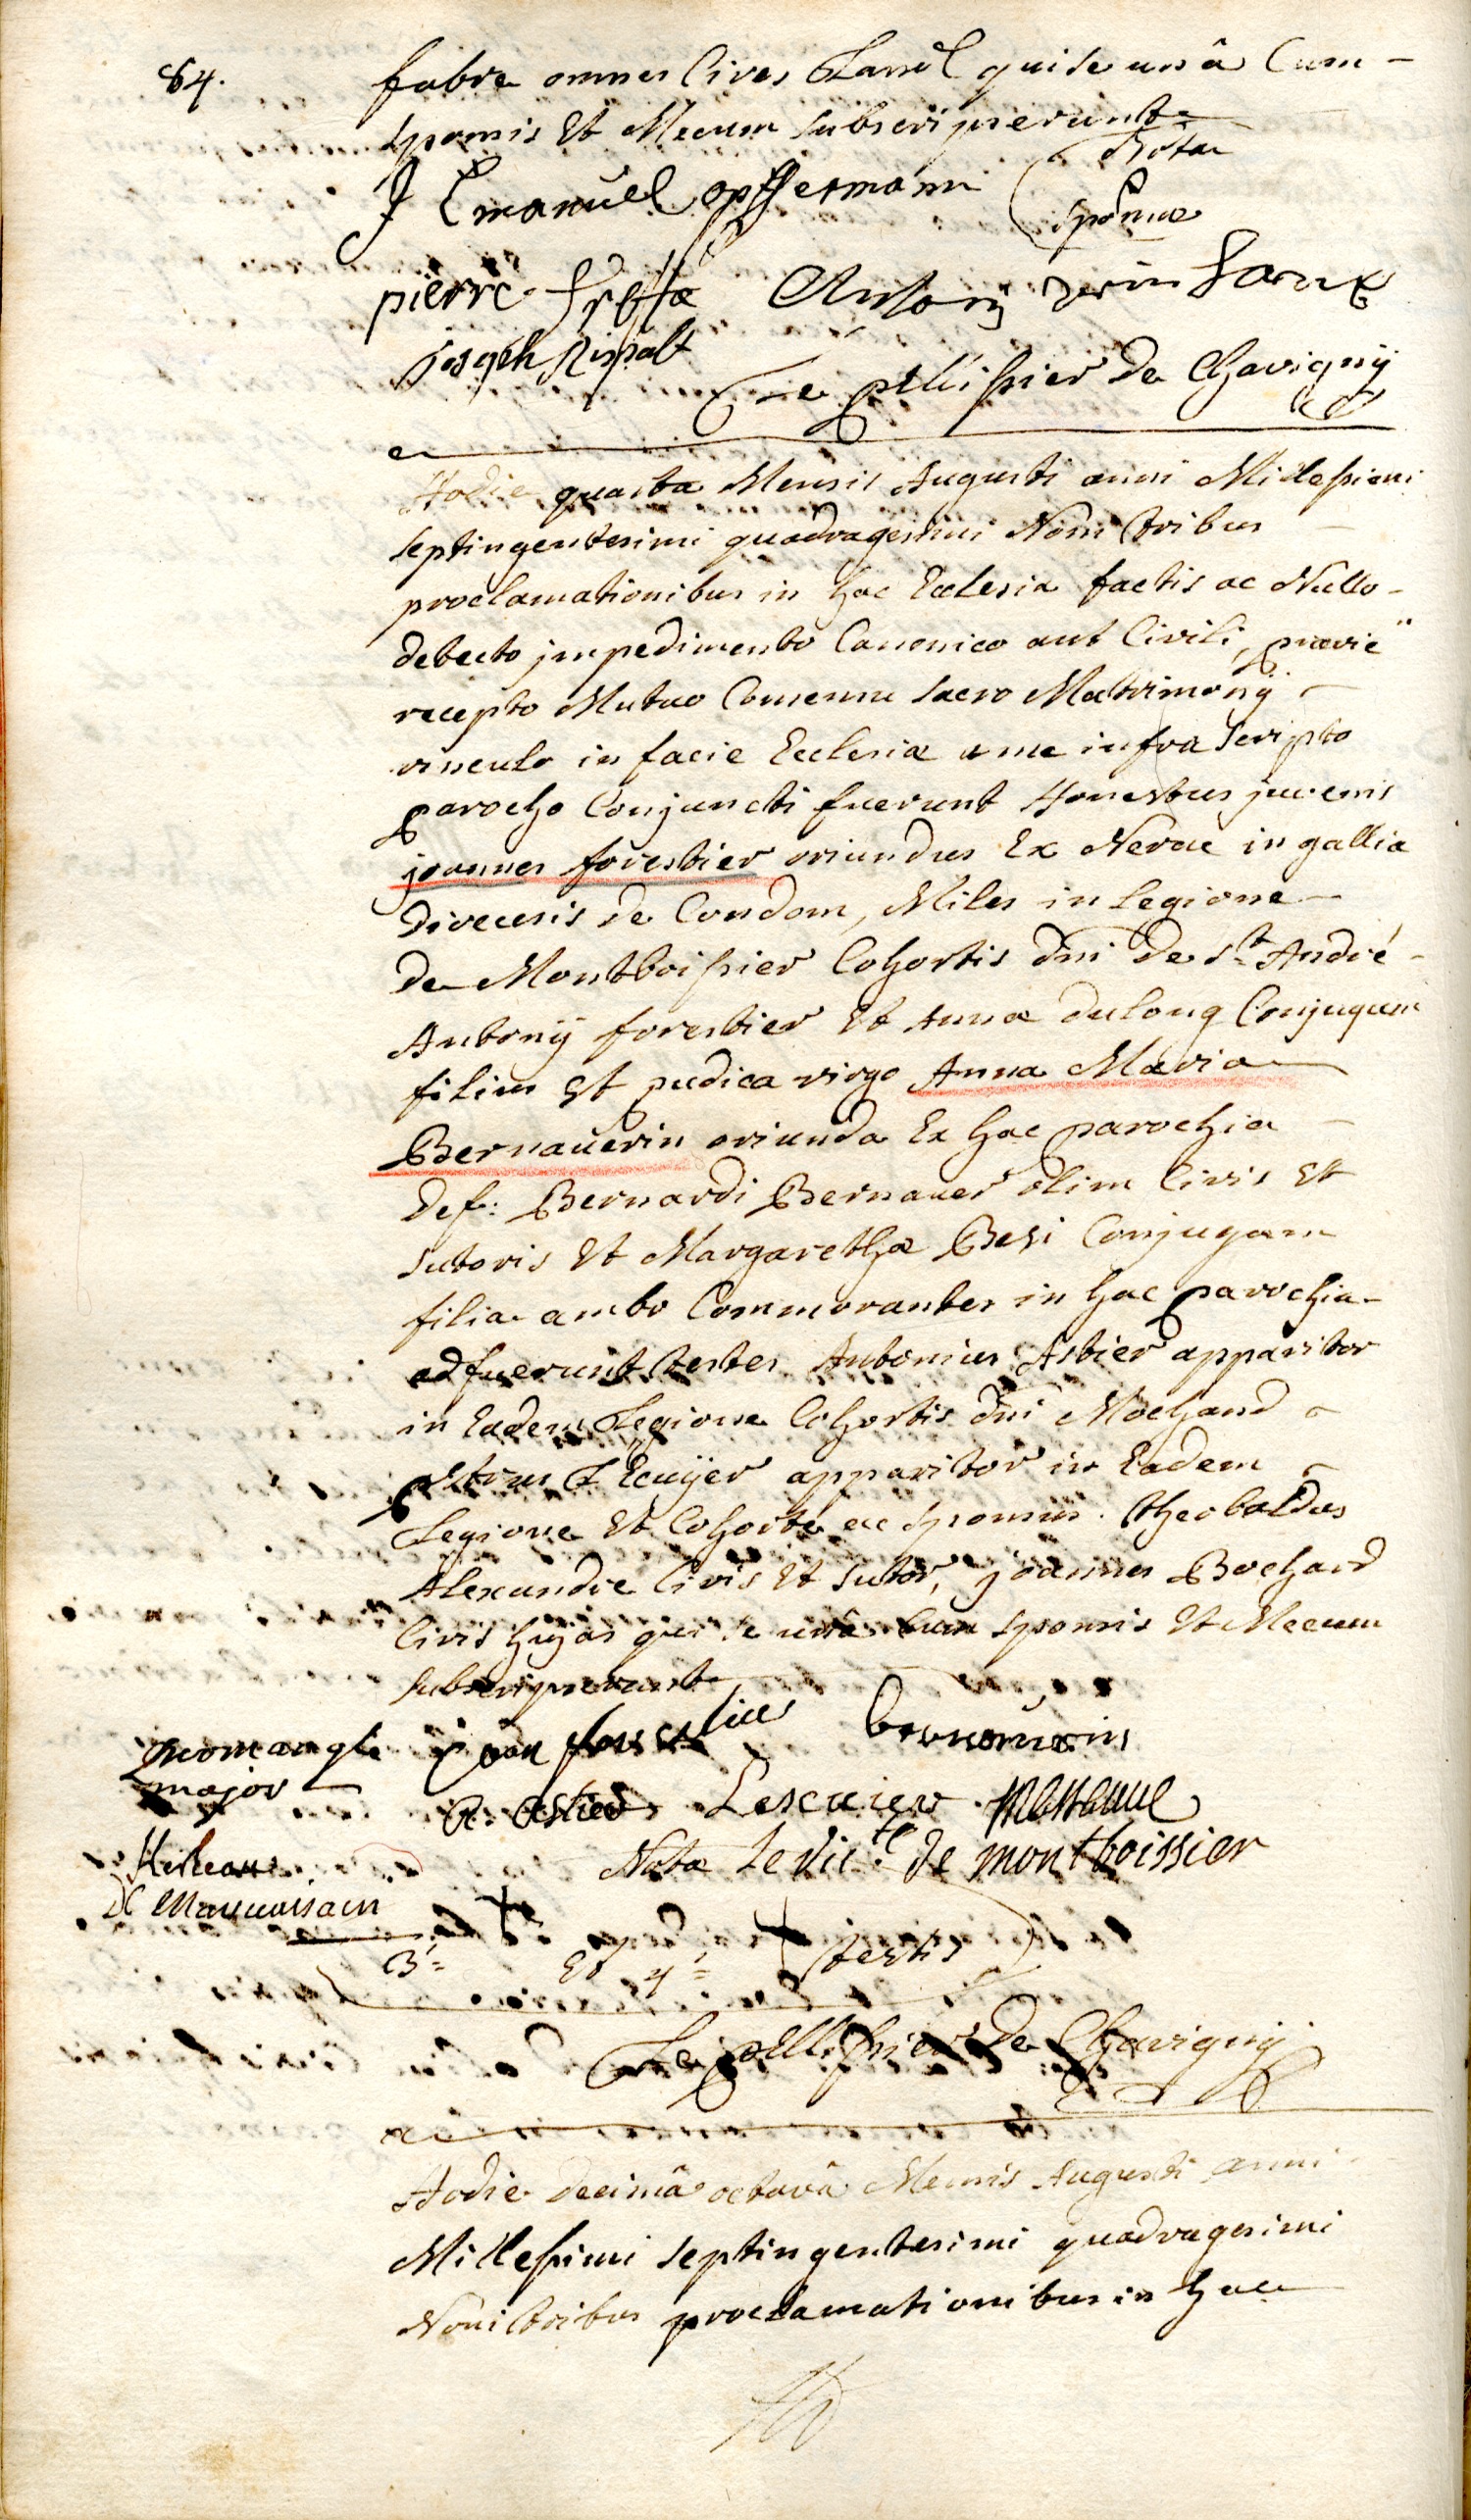 64.
fabre omnes Cives qui se unâ Cum
sponsis Et Mecum subscripserunt
Nota
J Emanuel opffermann
sponsae
pierre Antonÿ
joseph
Le pellissier De Chavignÿ
Hodie quarta Mensis Augusti anni Millesimi
septingentesimi quadragesimi Noni tribus
proclamationibus in hac Ecclesia factis ac Nullo
detecto jmpedimento Canonico aut Civili, praevie
recepto Mutuo Consensu sacro Matrimonÿ
vinculo in facie Ecclesiae a me infra scripto
parocho Conjuncti fuerunt Honestus juvenis
joannes forestier oriundus Ex Nerac in gallia
Dioecesis de Condom, Miles in legione
de Montboissier Cohortis dni De st. André
Antonÿ forestier Et Annae dulong Conjugum
filius Et pudica virgo Anna Maria
Bernauerin oriunda Ex hac parochia
Def: Bernardi Bernauer olim Civis Et
sutoris Et Margarethae Besi Conjugum
filia ambo Commorantes in hac parochia
adfuerunt testes Antonius Astier apparitor
in Eadem Legione Cohortis dni Mochand
petrus L'Ecuÿer apparitor in Eadem
Legione Et Cohorte ac sponsus. theobaldus
Alexandre Civis Et sutor, joannes Bochard
Civis hujas qui se unâ Cum sponsis Et Mecum
subscripserunt
major
jean forestier bernauerin
A. Astier Lescuier
Nota Le vic.te de montboissier
De
3ii Et 4ii testis
Le pellissier De Chavignÿ
Hodie decimâ octavâ Mensis Augusti anni
Millesimi septingentesimi quadragesimi
Noni tribus proclamationibus in hac